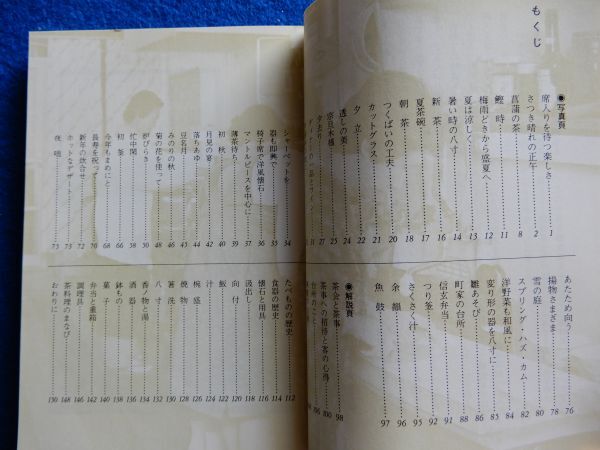 もくじ
◉写真頁
席入りを待つ楽しさ……1
さつき晴れの正午……2
菖蒲の茶……8
鰹時……11
梅雨どきから盛夏へ……12
夏は涼しく……13
暑い時の八寸……14
新茶……16
夏茶碗……17
朝茶……18
つくばいの工夫……20
カットグラス……21
夕立……22
透しの美……24
奈良木椀……25
夕去り……27
シャーベットを……34
器も即興で……35
椅子席で洋風懐石……36
マントルピースを中心に……37
薄茶待ち……39
初秋……40
月見の宴……42
落ちあゆ……43
豆名月……44
みのりの秋……46
菊の花を使って……48
炉びらき……50
忙中閑……58
初釜……66
今年もまめにと……68
長寿を祝って……70
新年の炊合せ……72
ホットなデザート……73
夜咄……75
あたため向う……76
揚物さまざま……78
雪の庭……80
スプリング・ハズ・カム……82
洋野菜も和風に……84
変り形の器を八寸に……85
雛あそび……86
町家の台所……88
信玄弁当……91
つり釜……92
さくさく汁……95
余韻……96
魚鼓……97
◉解説頁
茶会と茶事……98
茶事への招待と客の心得……100
台所のこと
たべものの歴史……112
食器の歴史……114
懐石と用具……116
汲出し……118
向付……120
飯……122
汁……124
椀盛……126
焼物……128
箸洗……130
八寸……132
香ノ物と湯……134
酒器……136
鉢もの……138
菓子……140
弁当と重箱……142
調理具……146
茶料理のまなび……148
おわりに……150